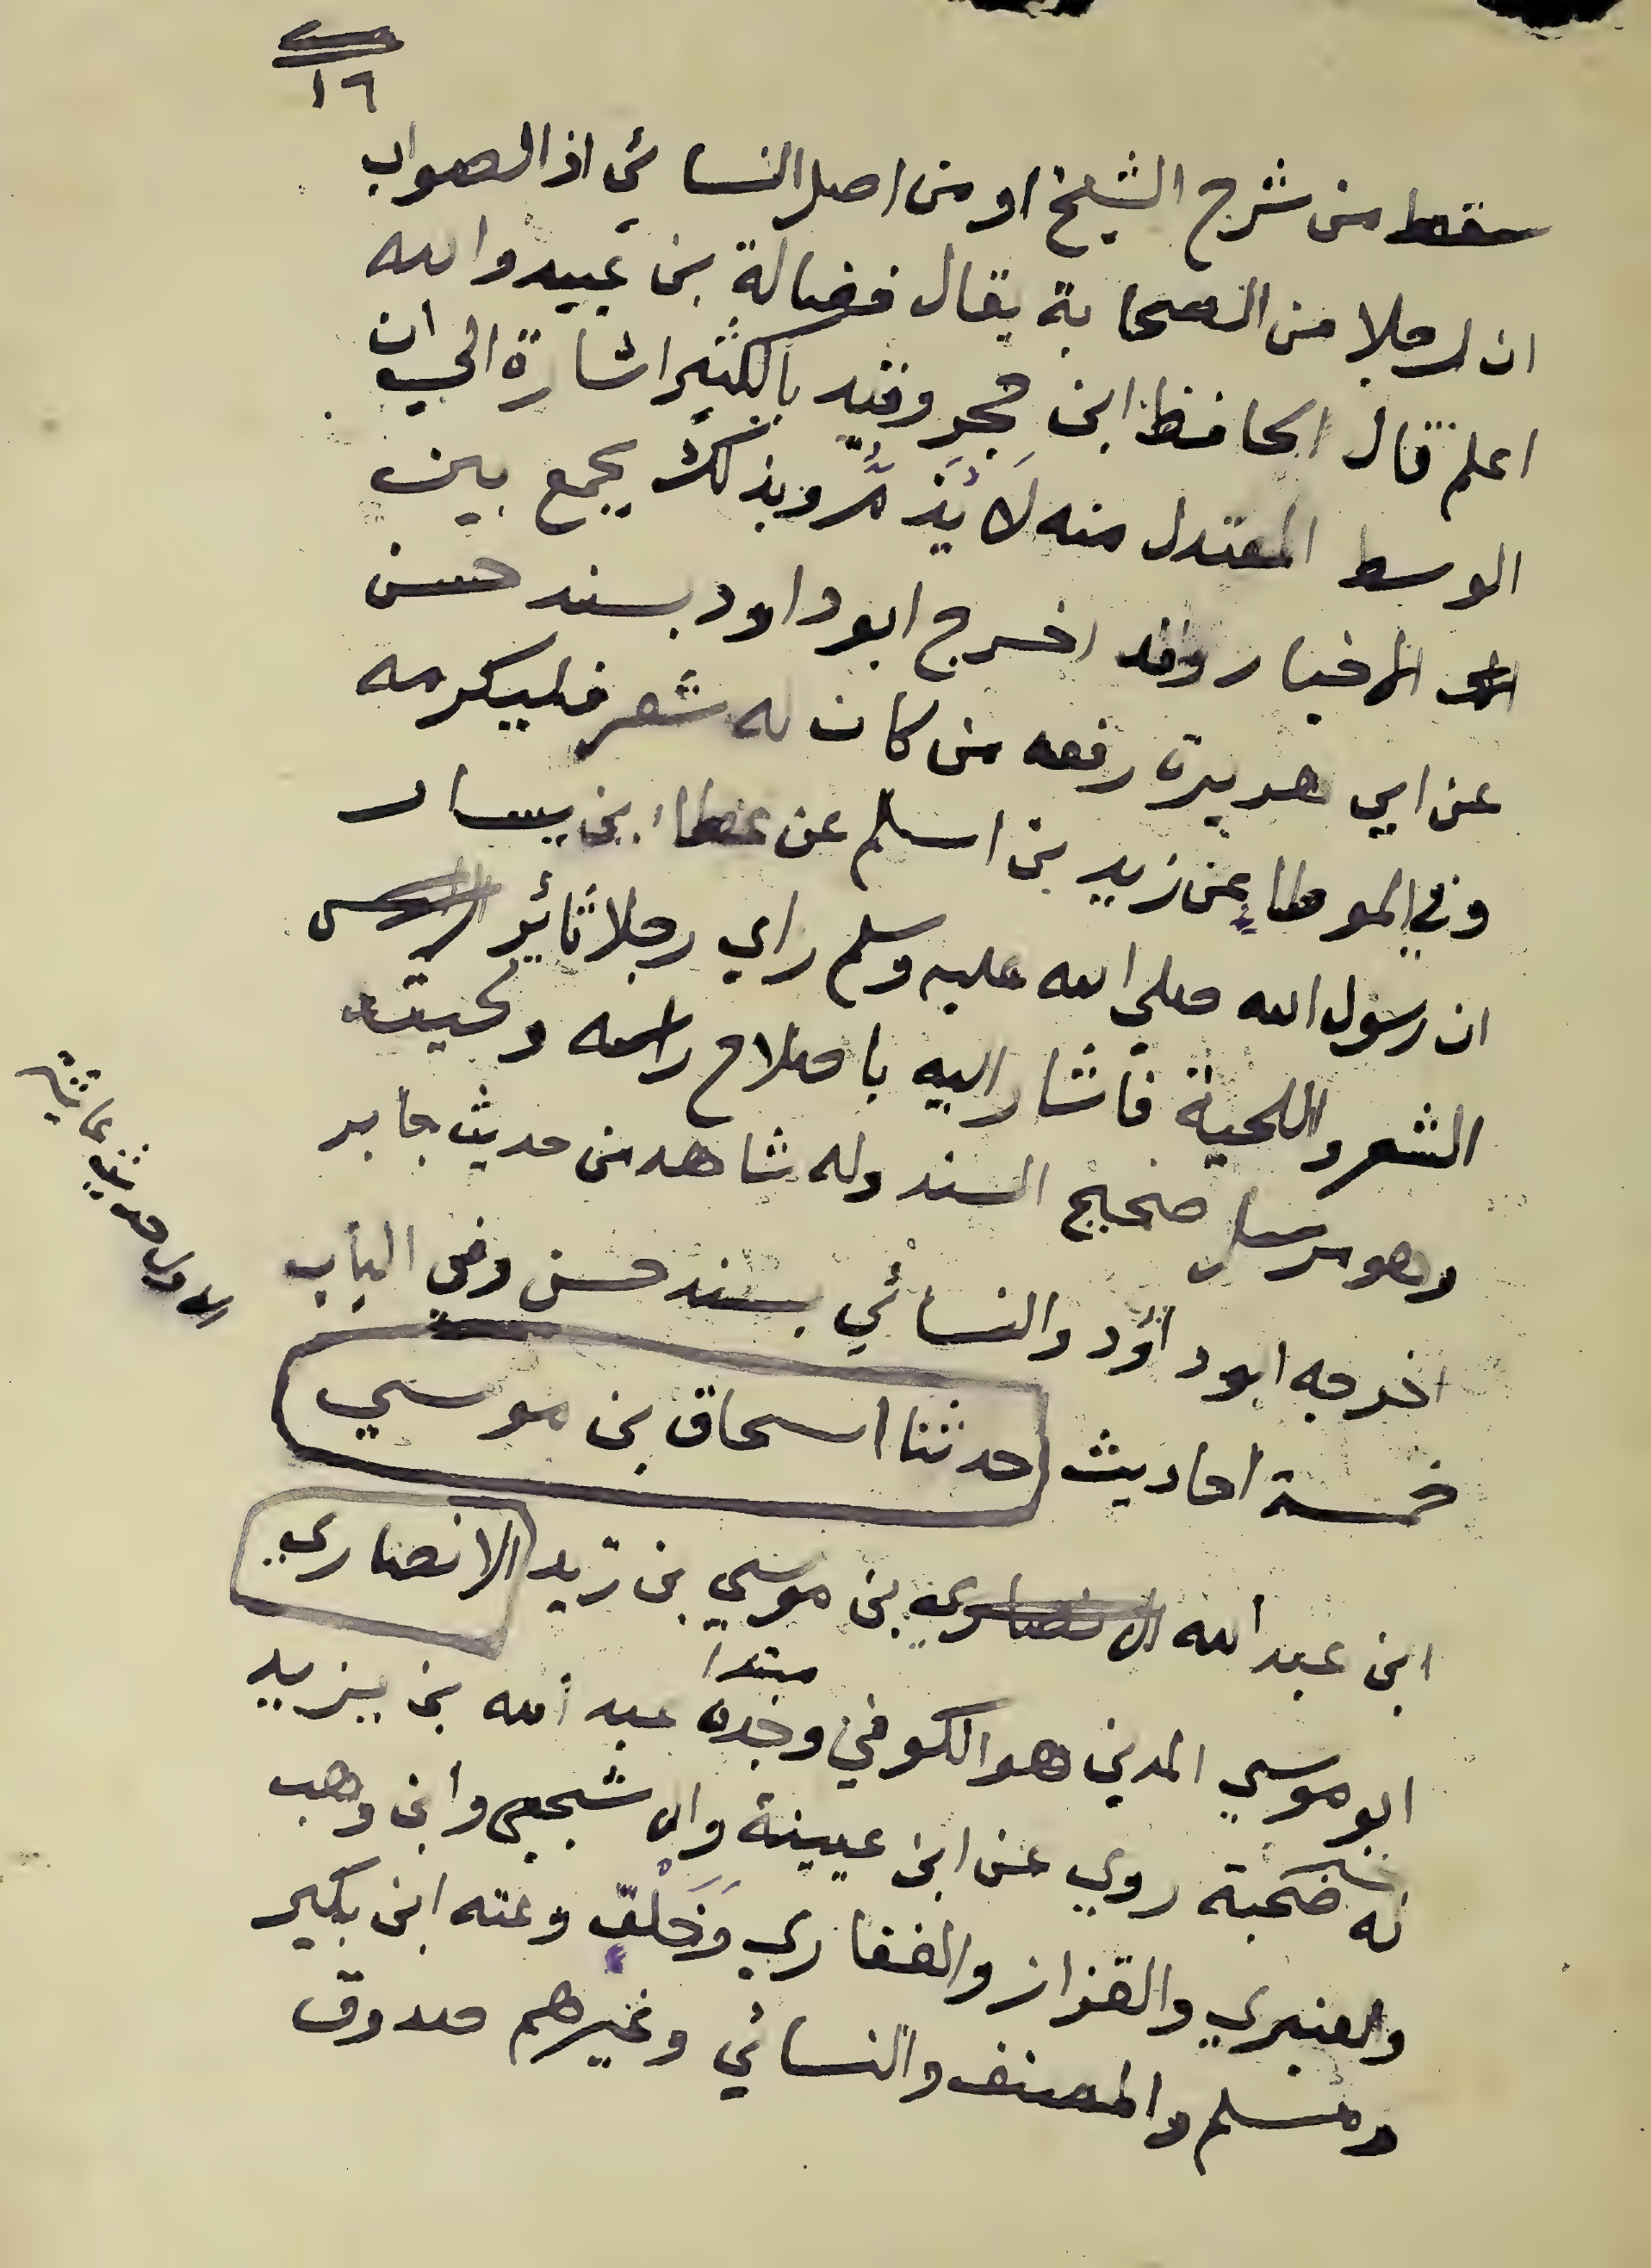 ١٦
سقط من شرح الشيخ او من اصل النسائي اذ الصواب
ان رجلا من الصحابة يقال فضالة بن عبيد والله
اعلم قال الحافظ ابن حجر وقيد بالكثير اشارة الي ان
الوسط المعتدل منه لَا يُذَمُّ وبذلك يجمع بين
الاخبار وقد اخرج ابو داود بسند حسن
عن ابي هريرة رفعه من كان له شعر فليكرمه
وفي الموطا عن زيد بن اسلم عن عطاء بن يسار
ان رسول الله صلي الله عليه وسلم راي رجلا ثائر
الشعر واللحية فأشار اليه باصلاح راسه ولحيته
وهو مرسل صحيح السند وله شاهد من حديث جابر
اخرجه ابو داؤد والنسائي بسند حسن وفي الباب
خمسة احاديث حدثنا اسحاق بن موسي
ابن عبد الله الانصاري بن موسي بن زيد الانصاري
مبتدا
ابو موسي المدني هو الكوفي وجده عبد الله بن يزيد
له صحبة روي عن ابن عيينة والاشجعي وابن وهب
والعنبري والقزاز والغفاري وَخَلْقٍ وعنه ابن بكير
ومسلم والمصنف والنسائي وغيرهم صدوق